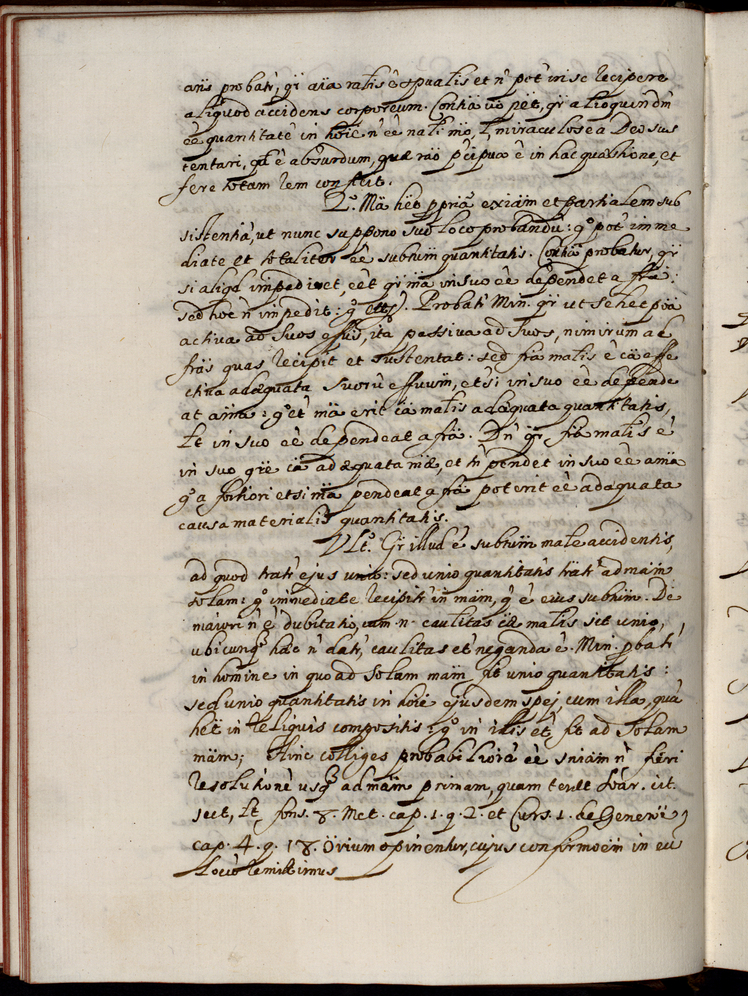 añs probatr, qr aïa ratis ê spualis et ñ pot in se recipere
aliquod accidens corporeum. Contra vo pêt, qr alioquin dñ
êe quantitatê in hoïe ñ êe nati mo, l miraculose a Deo sus
tentari, qd ê absurdum, quæ rao p'cipua ê in hac quæstione, et
fere totam rem conficit.
2.º Mã hêt ppria exiam et partialem sub
sistentiã, ut nunc suppono suo loco probandũ: gº pot imme
diate et totaliter êe subtum quantitatis. Contra probatur, qr
si aliqd impediret, eêt qr mã in suo êe dependet a frã:
sed hoc ñ impedit: gº ett. Probatr Min. qr ut se hêt pia
activa ad suos effus, ita passiva ad suos, nimirum ad
frãs quas recipit et sustentat: sed frã malis ê cã effe
ctiva adæquata suorũ effuum, etsi in suo êe depende
at a mã: gº et mã erit cã malis adæquata quantitatis,
lt in suo êe dependeat a frã. Dñ qr frã malis ê
in suo gre cã adæquata mæ, et tñ pendet in suo êe a mã
gº a fortiori etsi mã pendeat a frã poterit êe adæquata
causa materialis quantitatis.
Vltº. Qr illud ê subtum male accidentis,
ad quod tratr ejus unio: sed unio quantitatis tratr ad mãm
solam: gº immediate recipitr in mãm, q ê eius subtum. De
maiori ñ ê dubitatio, nam .n. caulitas cæ malis sit unio,
ubicunqᵉ hæc ñ datr, caulitas et neganda ê. Min. pbatr
in homine in quo ad solam mãm fit unio quantitatis:
sed unio quantitatis in hoïe ejusdem spej cum illa, quã
hêt in reliquis compositis: gº in illis et fit ad solam
mãm; Hinc colliges probabiliorã êe sniãm ñ fieri
resolutionê usqᵉ ad mãm primam, quam tenet Suar. cit.
sect, lt fons. 8. Met. cap. 1. q. 2. et Curs. 1. de Generõe
cap. 4. q. 18. Orium opinentur, cujus confirmoem in eũ
locũ remittimus